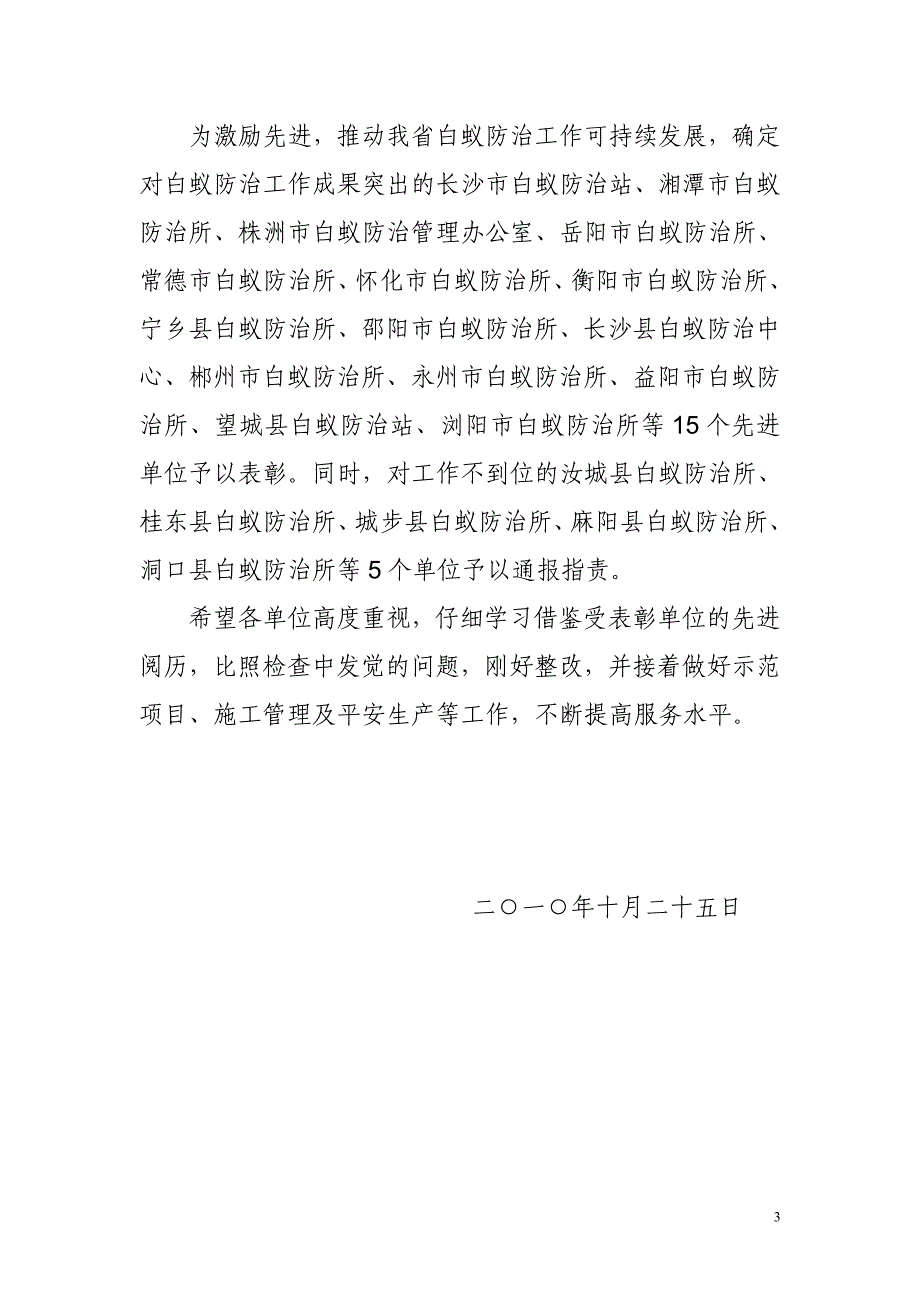 为激励先进，推动我省白蚁防治工作可持续发展，确定
对白蚁防治工作成果突出的长沙市白蚁防治站、湘潭市白蚁
防治所、株洲市白蚁防治管理办公室、岳阳市白蚁防治所、
常德市白蚁防治所、怀化市白蚁防治所、衡阳市白蚁防治所、
宁乡县白蚁防治所、邵阳市白蚁防治所、长沙县白蚁防治中
心、郴州市白蚁防治所、永州市白蚁防治所、益阳市白蚁防
治所、望城县白蚁防治站、浏阳市白蚁防治所等 15 个先进
单位予以表彰。同时，对工作不到位的汝城县白蚁防治所、
桂东县白蚁防治所、城步县白蚁防治所、麻阳县白蚁防治所、
洞口县白蚁防治所等 5 个单位予以通报指责。
希望各单位高度重视，仔细学习借鉴受表彰单位的先进
阅历，比照检查中发觉的问题，刚好整改，并接着做好示范
项目、施工管理及平安生产等工作，不断提高服务水平。
二〇一〇年十月二十五日
3